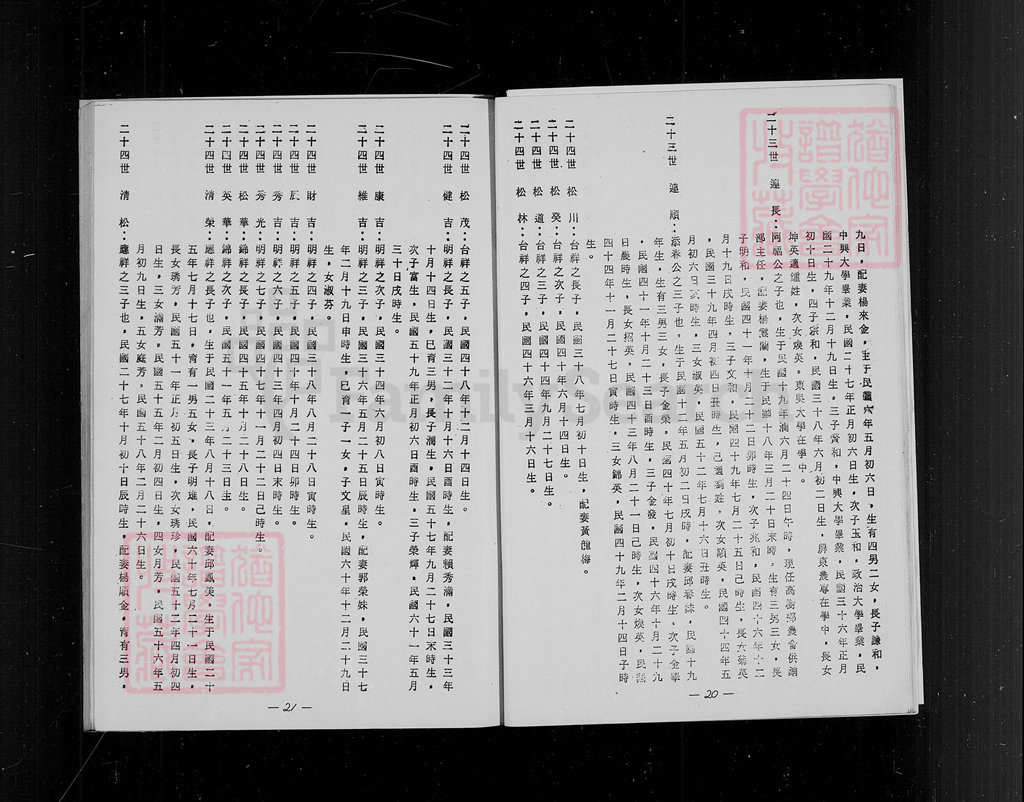 九日，配妻楊來金，生于民國六年五月初六日，生有四男二女，長子謙和，
中興大學畢業，民國二十七年正月初六日生，次子玉和，政治大學畢業，民
國二十九年十二月十九日生，三子賢和，中興大學畢業，民國三十六年正月
初十日生，四子崇和，民國三十八年六月初二日生，屏東農專在學中，長女
坤英適鍾姓，次女煥英，東吳大學在學中。
二十三世　運　長：阿福公之子也，生于民國十九年潤六月二十四日午時，現任高樹鄉農會供銷
部主任，配妻楊鳳蘭，生于民國十八年三月二十日未時，生有三男三女，長
子明和，民國四十一年十月二十二日卯時生，次子兆和，民國四十六年十二
月十九日戌時生，三子文和，民國四十九年七月二十五日己時生，長女菊英
，民國三十九年四月初四日丑時生，己適馮姓，次女順英，民國四十四年五
月初六日亥時生，三女淑英，民國五十二年七月十六日丑時生。
二十三世　運　順：添春公之三子也，生于民國十二年五月初二日戌時，配妻邱春妹，民國十九
年生，生有三男三女，長子金榮，民國四十年七月初十日戌時生，次子金華
，民國四十一年十月二十三日酉時生，三子金發，民國四十六年十月二十九
日辰時生，長女招英，民國四十三年八月二十一日己時生，次女煥英，民國
四十四年十一月二十七日寅時生，三女錦英，民國四十九年二月十四日子時
生。
二十四世　松　川：台祥之長子，民國三十八年七月初十日生，配妻黃龍梅。
二十四世　松　癸：台祥之次子，民國四十年六月十四日生。
二十四世　松　道：台祥之三子，民國四十四年九月二十七日生。
二十四世　松　林：台祥之四子，民國四十六年三月十六日生。
—20—
二十四世　松　茂：台祥之五子，民國四十八年十二月十四日生。
二十四世　健　吉：明祥之長子，民國三十二年十月十六日酉時生，配妻賴秀滿，民國三十三年
十月十四日生，已育三男，長子潤生，民國五十七年九月二十七日未時生，
次子富生，民國五十九年正月初六日酉時生，三子榮輝，民國六十一年五月
三十日戌時生。
二十四世　康　吉：明祥之次子，民國三十四年六月初八日寅時生。
二十四世　維　吉：明祥之三子，民國三十六年五月二十五日辰時生，配妻郭榮妹，民國三十七
年二月十九日申時生，已育一子一女，子文星，民國六十年十二月二十九日
生，女淑芬。
二十四世　財　吉：明祥之四子，民國三十八年八月二十八日寅時生。
二十四世　辰　吉：明祥之五子，民國四十年十月二十四日卯時生。
二十四世　秀　吉：明祥之六子，民國四十三年四月初四日末時生。
二十四世　秀　光：明祥之七子，民國四十七年十一月二十二日己時生。
二十四世　松　華：錦祥之長子，民國四十五年十二月十三日生。
二十四世　英　華：錦祥之次子，民國五十一年五月二十三日生。
二十四世　清　榮：應祥之長子也，生于民國二十三年八月十八日，配妻邱鳳美，生于民國二十
五年七月十七日，育有一男五女，長子明雄，民國六十年七月二十一日生，
長女琇芳，民國五十一年正月初五日生，次女琇珍，民國五十二年四月初四
日生，三女滿芳，民國五十五年二月初四日生，四女月芳，民國五十六年五
月初九日生，五女庭芳，民國五十八年二月二十六日生。
二十四世　清　松：應祥之三子也，民國二十七年十月初十日辰時生，配妻楊順金，育有三男，
—21—
FamilySearch